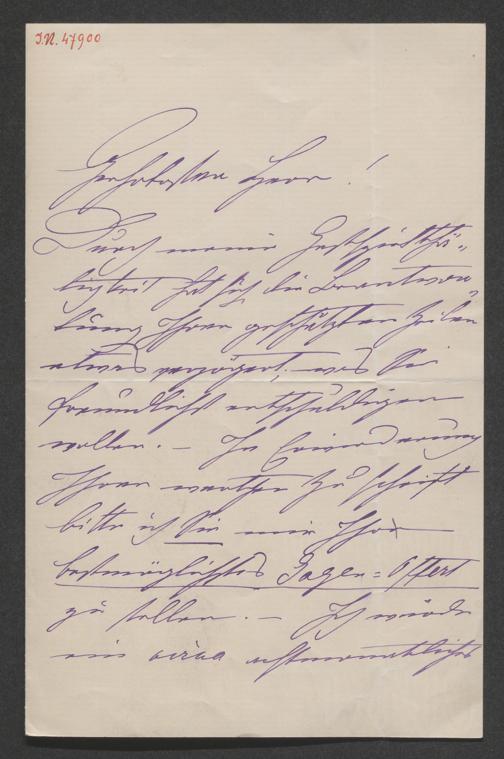 J.N. 47900
Hochgeehrter Herr!
Durch meine Gastspielthä-
tigkeit hat sich die Beantwor-
tung Ihrer geschätzten Zeilen
etwas verzögert, was Sie
freundlichst entschuldigen
wollen. – In Erwiederung
Ihrer werthen Zuschrift
bitte ich Sie mir Ihr
bestmöglichstes Gagen=Offert
zu stellen. – Ich würde
ein circa achtmonatliches